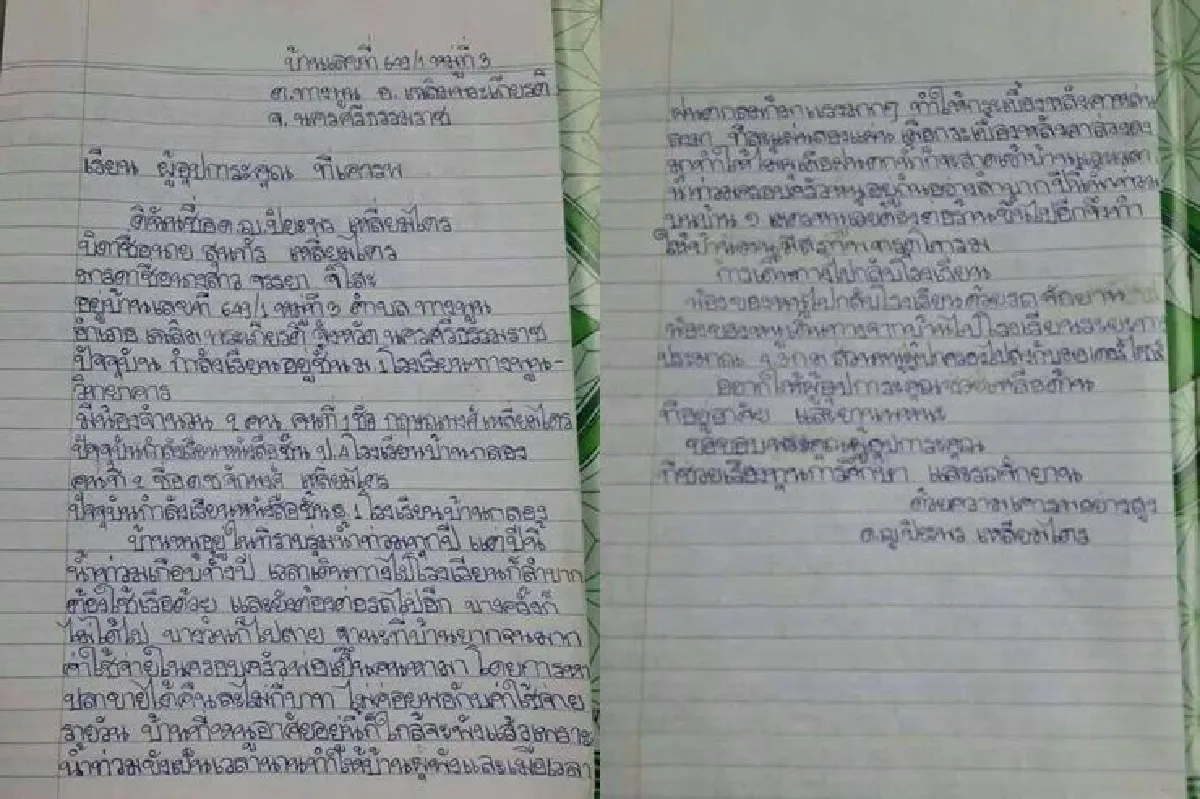 บ้านเลขที่ 649/1 หมู่ที่ 3
ต.ทางพูน อ.เฉลิมพระเกียรติ
จ.นครศรีธรรมราช
เรียน ผู้อุปการะคุณ ที่เคารพ
ดิฉันชื่อ ด.ญ.ปิยะพร เหลี่ยมไตร
บิดาชื่อนาย สุนทร เหลี่ยมไตร
มารดาชื่อนางสาว จรรยา
อยู่บ้านเลขที่ 649/1 หมู่ที่ 3 ตำบล ทางพูน
อำเภอ เฉลิมพระเกียรติ จังหวัด นครศรีธรรมราช
ปัจจุบัน กำลังเรียนอยู่ชั้น ม.1 โรงเรียนทางพูน-
วิทยาคาร
มีน้องจำนวน 2 คน คนที่ 1 ชื่อ กฤษณพงศ์ เหลี่ยมไตร
ปัจจุบันกำลังเรียนหนังสือชั้น ป.4 โรงเรียนบ้านกลอง
คนที่ 2 ชื่อ ด.ช. เหลี่ยมไตร
ปัจจุบันกำลังเรียนหนังสือชั้น อ.1 โรงเรียนบ้านกลอง
บ้านหนูอยู่ในที่ราบลุ่มน้ำท่วมทุกปี แต่ปีนี้
น้ำท่วมเกือบทั้งปี เวลาเดินทางไปโรงเรียนก็ลำบาก
ต้องใช้เรือด้วย และยังต้องต่อรถไปอีก บางครั้งก็
ไม่ได้ไป บางวันก็ไปสาย ฐานะที่บ้านยากจนมาก
ค่าใช้จ่ายในครอบครัวพ่อเป็นคนหามา โดยการหา
ปลาขายได้คืนละไม่กี่บาท ไม่ค่อยพอกับค่าใช้จ่าย
รายวัน บ้านที่หนูอาศัยอยู่นี้ก็ใกล้จะพังแล้วเพราะ
น้ำท่วมขังเป็นเวลานานทำให้บ้านผุพังและเมื่อเวลา
ฝนตกลงทีลมแรงมากๆ ทำให้กระเบื้องหลังคาหล่น
ลงมา ทีละแผ่นสองแผ่น เมื่อกระเบื้องหลังคาร่วงลง
มาทำให้ เมื่อฝนตกน้ำก็จะสาดเข้าบ้าน
น้ำท่วมครอบครัวหนูอยู่กันอย่างลำบาก ปีนี้น้ำท่วม
บนบ้าน
ให้บ้านของหนูมีสภาพทรุดโทรม
การเดินทางไปกลับโรงเรียน
น้องของหนูไปกลับโรงเรียนด้วยรถจักรยาน
น้องของหนูเดินทางจากบ้านไปโรงเรียนระยะทาง
ประมาณ ส่วนหนูผู้ปกครองไปส่งกับมอเตอร์ไซค์
อยากให้ผู้อุปการะคุณช่วยเหลือด้าน
ที่อยู่อาศัย และยานพาหนะ
ขอขอบพระคุณผู้อุปการะคุณ
ที่ช่วยเรื่องทุนการศึกษา และรถจักยาน
ด้วยความเคารพอย่างสูง
ด.ญ.ปิยะพร เหลี่ยมไตร